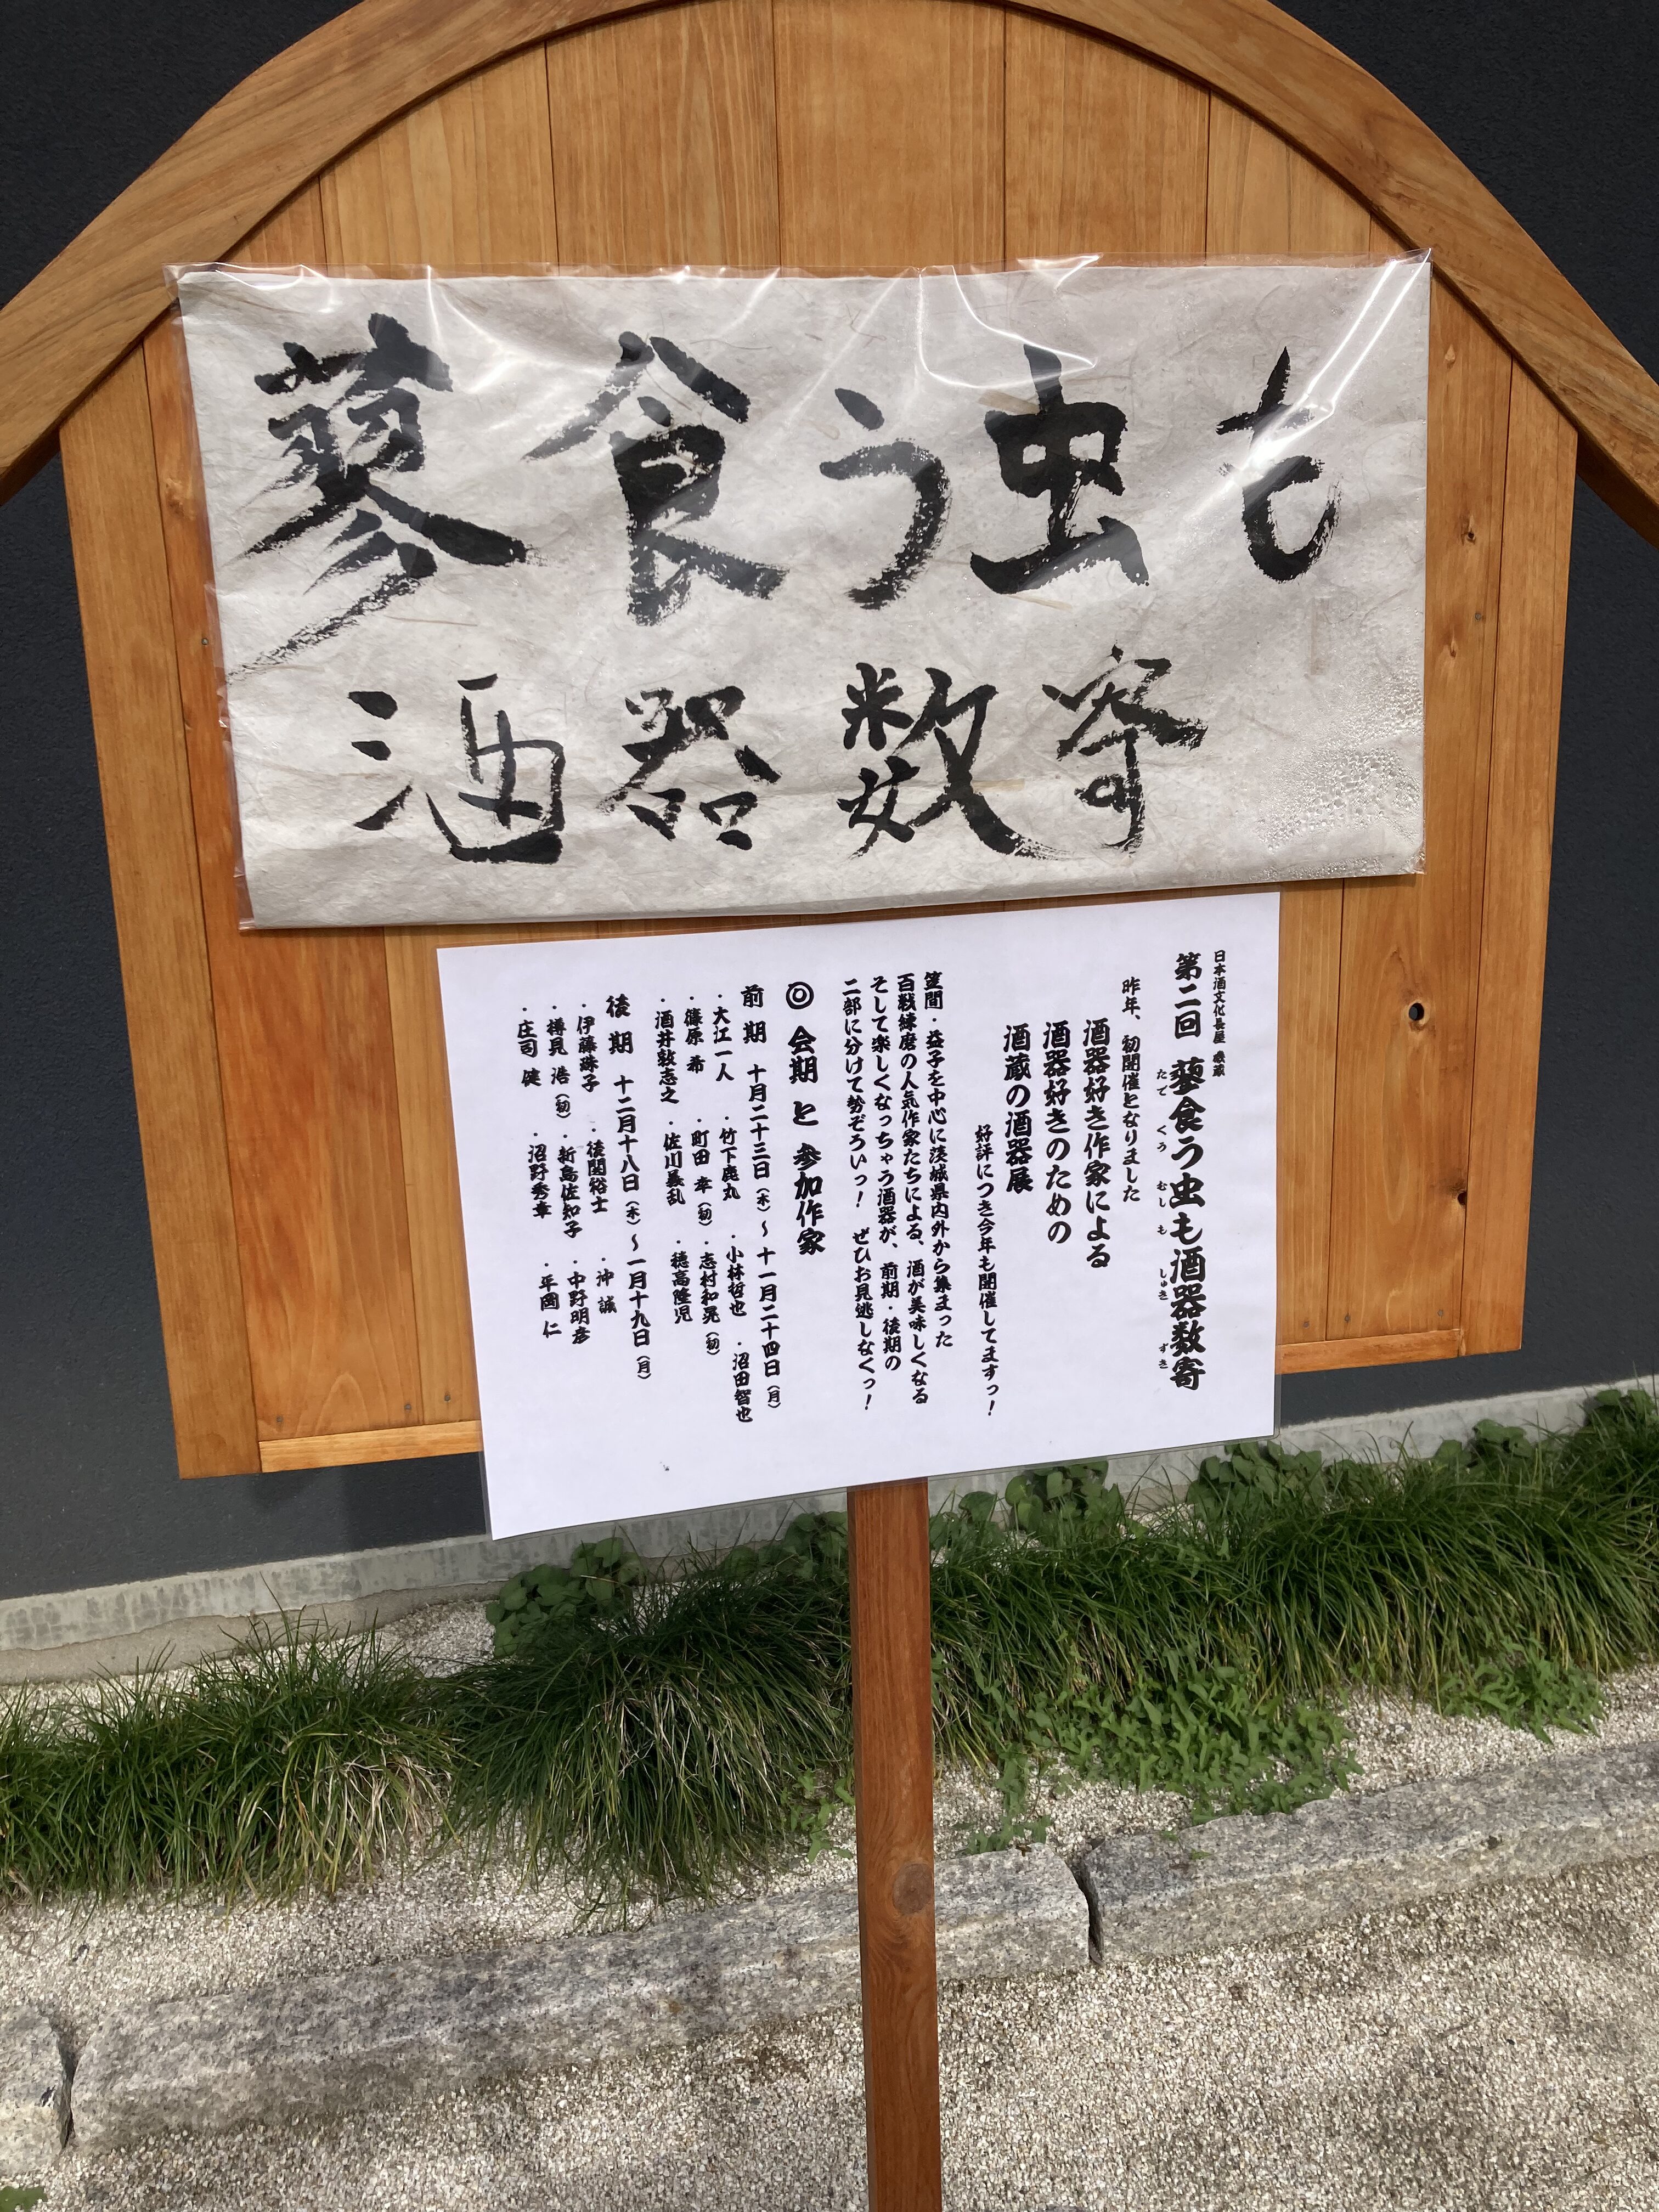 蓼食う虫も
酒器数寄
日本酒文化長屋 磯蔵
第二回 蓼食う虫も酒器数寄
たで くう むし も しゅき ずき
昨年、初開催となりました
酒器好き作家による
酒器好きのための
酒蔵の酒器展
好評につき今年も開催してますっ！
笠間・益子を中心に茨城県内外から集まった
百戦錬磨の人気作家たちによる、酒が美味しくなる
そして楽しくなっちゃう酒器が、前期・後期の
二部に分けて勢ぞろいっ！ ぜひお見逃しなくっ！
◎ 会期 と 参加作家
前 期 十月二十三日（木）～十一月二十四日（月）
・大江一人 ・竹下鹿丸 ・小林哲也 ・沼田智也
・篠原 希 ・町田 幸（初） ・志村和晃（初）
・酒井敦志之 ・佐川義乱 ・穂高隆児
後 期 十二月十八日（木）～一月十九日（月）
・伊藤珠子 ・後関裕士 ・沖 誠
・樽見 浩（初） ・新島佐知子 ・中野明彦
・庄司 健 ・沼野秀章 ・平岡 仁